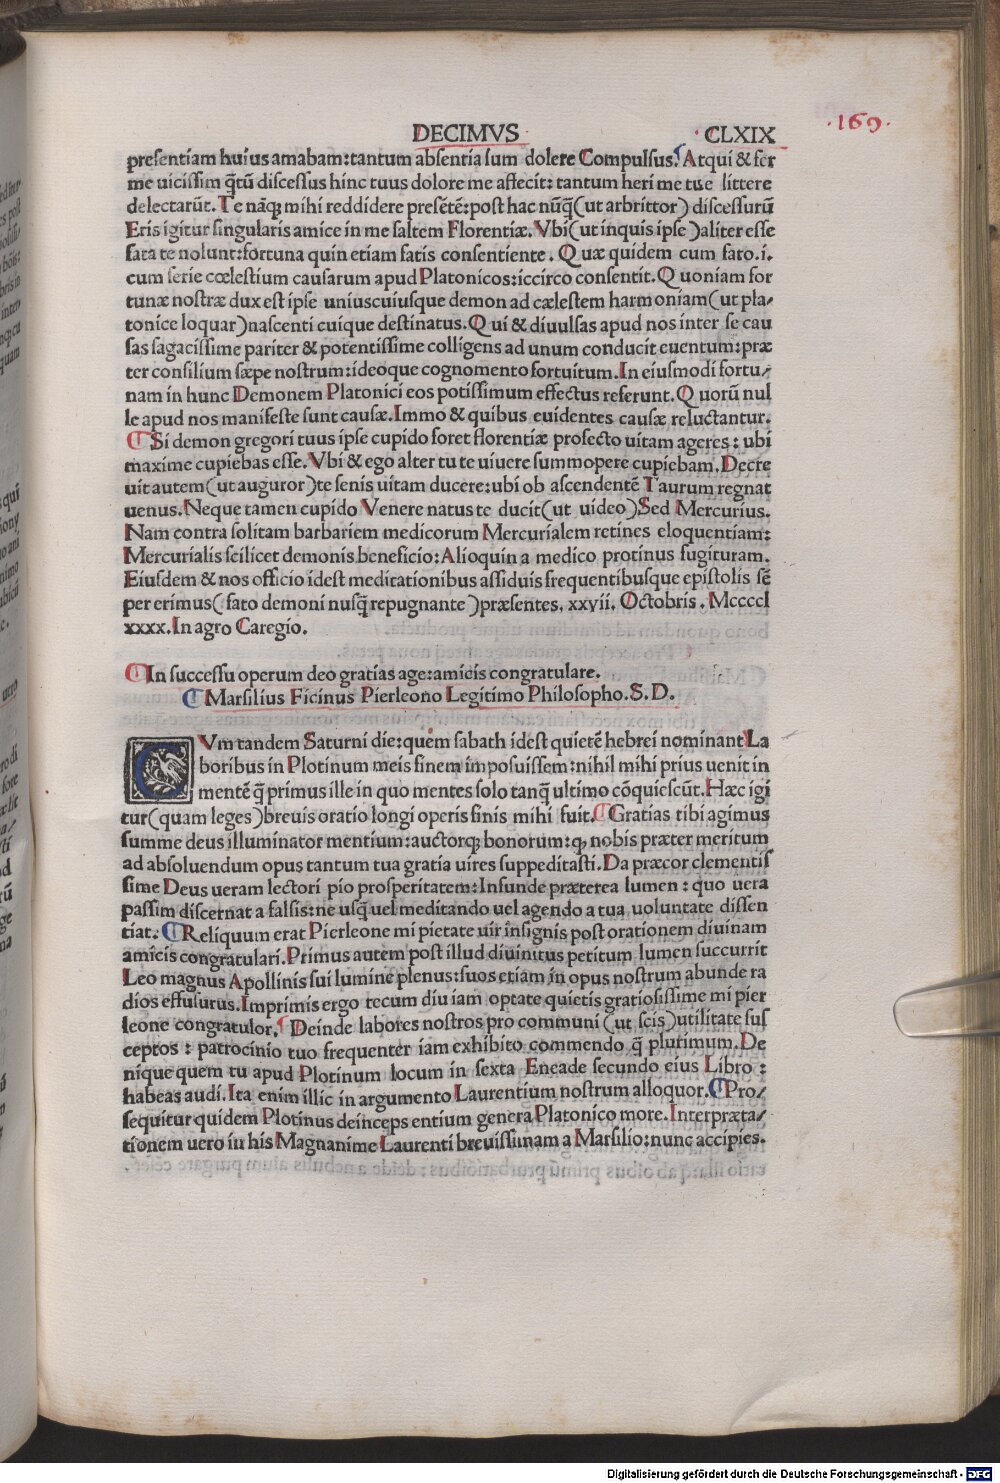 DECIMVS CLXIX
·169·
presentiam huius amabam: tantum absentia sum dolere Compulsus. Atqui & fer
me uicissim q̃tũ discessus hinc tuus dolore me affecit: tantum heri me tue littere
delectarũt. Te nãq; mihi reddidere presẽtẽ: post hac nũq̃(ut arbrittor) discessurũ
Eris igitur singularis amice in me saltem Florentiæ. Vbi(ut inquis ipse)aliter esse
fata te nolunt: fortuna quin etiam fatis consentiente. Quæ quidem cum fato. i.
cum serie cœlestium causarum apud Platonicos: iccirco consentit. Quoniam for
tunæ nostræ dux est ipse uniuscuiusque demon ad cælestem harmoniam(ut pla/
tonice loquar)nascenti cuique destinatus. Qui & diuulsas apud nos inter se cau
sas sagacissime pariter & potentissime colligens ad unum conducit euentum: præ
ter consilium sæpe nostrum: ideoque cognomento fortuitum. In eiusmodi fortu/
nam in hunc Demonem Platonici eos potissimum effectus referunt. Quorũ nul
le apud nos manifeste sunt causæ. Immo & quibus euidentes causæ reluctantur.
Si demon gregori tuus ipse cupido foret florentiæ profecto uitam ageres: ubi
maxime cupiebas esse. Vbi & ego alter tu te uiuere summopere cupiebam. Decre
uit autem(ut auguror)te senis uitam ducere: ubi ob ascendentẽ Taurum regnat
uenus. Neque tamen cupido Venere natus te ducit(ut uideo)Sed Mercurius.
Nam contra solitam barbariem medicorum Mercurialem retines eloquentiam:
Mercurialis scilicet demonis beneficio: Alioquin a medico protinus fugituram.
Eiusdem & nos officio idest meditationibus assiduis frequentibusque epistolis sẽ
per erimus(fato demoni nusq̃ repugnante)præsentes. xxyii. Octobris. Mccccl
xxxx. In agro Caregio.
In successu operum deo gratias age: amicis congratulare.
Marsilius Ficinus Pierleono Legitimo Philosopho. S. D.
CVm tandem Saturni die: quem sabath idest quietẽ hebrei nominant La
boribus in Plotinum meis finem imposuissem: nihil mihi prius uenit in
mentẽ q̃ primus ille in quo mentes solo tanq̃ ultimo cõquiescũt. Hæc igi
tur(quam leges)breuis oratio longi operis finis mihi fuit. Gratias tibi agimus
summe deus illuminator mentium: auctorq; bonorum: q, nobis præter meritum
ad absoluendum opus tantum tua gratia uires suppeditasti. Da præcor clementis
sime Deus ueram lectori pio prosperitatem: Infunde præterea lumen: quo uera
passim discernat a falsis: ne usq̃ uel meditando uel agendo a tua uoluntate dissen
tiat. Reliquum erat Pierleone mi pietate uir insignis post orationem diuinam
amicis congratulari. Primus autem post illud diuinitus petitum lumen succurrit
Leo magnus Apollinis sui lumine plenus: suos etiam in opus nostrum abunde ra
dios effusurus. Imprimis ergo tecum diu iam optate quietis gratiosissime mi pier
leone congratulor. Deinde labores nostros pro communi(ut scis)utilitate sus
ceptos: patrocinio tuo frequenter iam exhibito commendo q̃ plurimum. De
nique quem tu apud Plotinum locum in sexta Eneade secundo eius Libro:
habeas audi. Ita enim illic in argumento Laurentium nostrum alloquor. Pro/
sequitur quidem Plotinus deinceps entium genera Platonico more. Interpræta/
tionem uero in his Magnanime Laurenti breuissimam a Marsilio: nunc accipies.
Digitalisierung gefördert durch die Deutsche Forschungsgemeinschaft - DFG